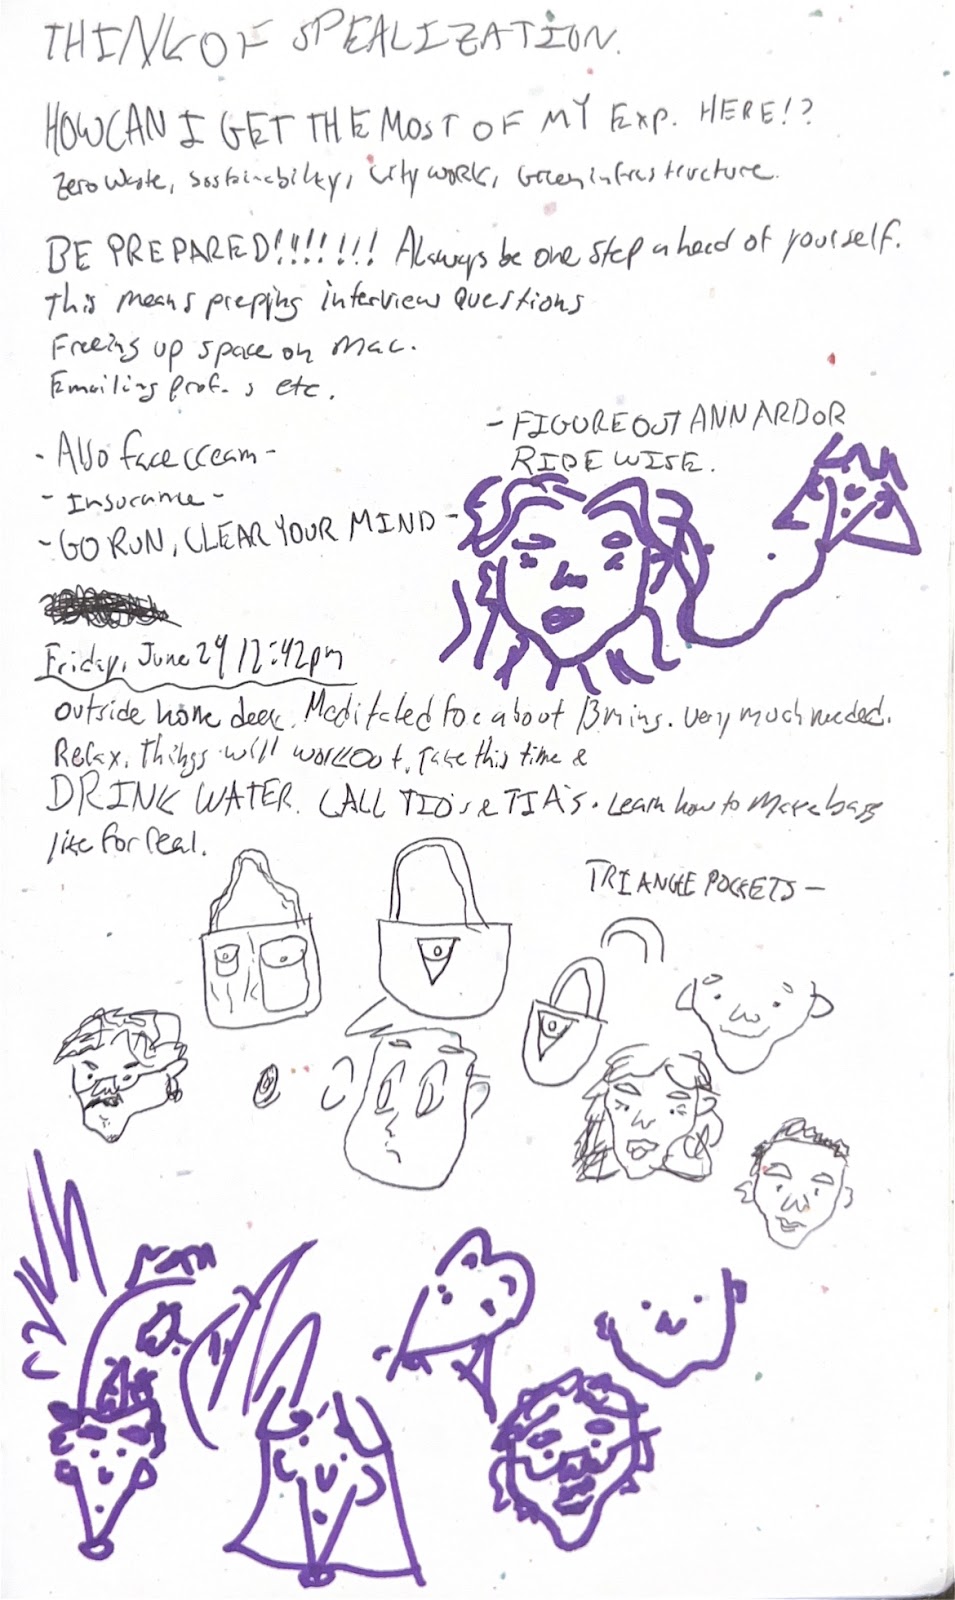 THINK OF SPEALIZATION.
HOW CAN I GET THE MOST OF MY EXP. HERE!?
Zero Waste, Sostainability, City work, Green infrastructure.
BE PREPARED!!!!!!! Always be one step ahead of yourself.
This means prepping interview questions
Freeing up space on Mac.
Emailing prof. s etc.
- FIGURE OUT ANN ARBOR
RIDE WISE.
- Also face cream -
- Insurance -
- GO RUN, CLEAR YOUR MIND -
Friday, June 24 12:42pm
outside home deck. Meditated for about 13 mins. very much needed.
Relax, things will workout. Take this time &
DRINK WATER. CALL TIO's & TIA's. Learn how to make bags
like for real.
TRIANGLE POCKETS -